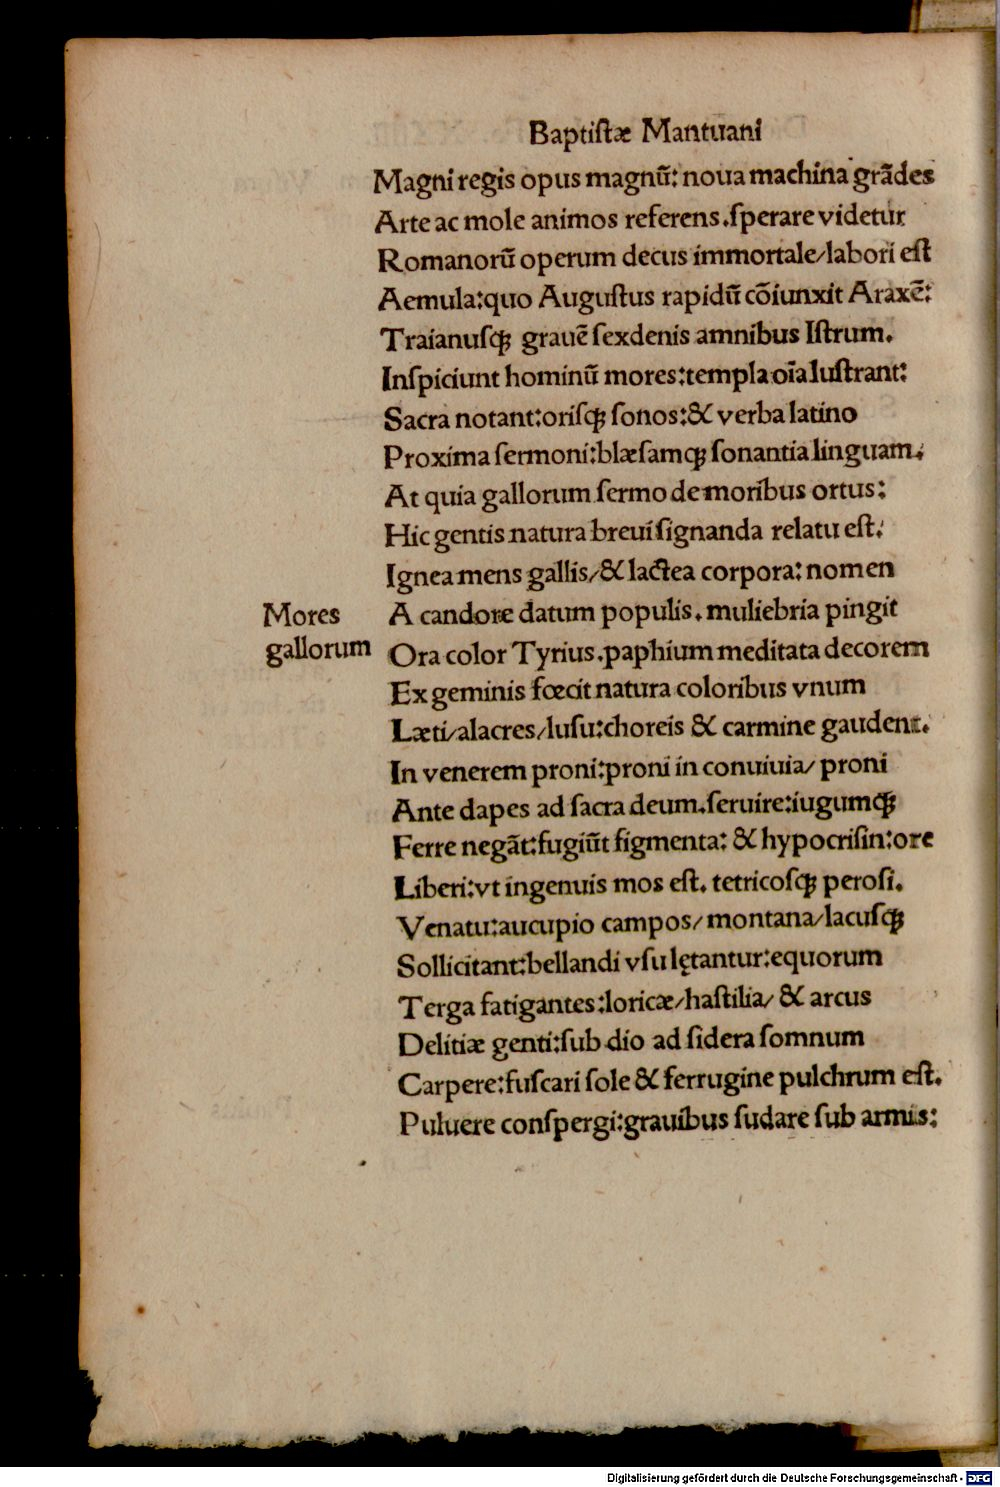 Baptistæ Mantuani
Magni regis opus magnũ: noua machina grãdes
Arte ac mole animos referens.ſperare videtur
Romanorũ operum decus immortale/labori eſt
Aemula:quo Auguſtus rapidũ cõiunxit Araxẽ:
Traianuſqꝫ grauẽ ſexdenis amnibus Iſtrum.
Inſpiciunt hominũ mores:templa oĩa luſtrant:
Sacra notant:oriſqꝫ ſonos:& verba latino
Proxima ſermoni:blæſamqꝫ ſonantia linguam.
At quia gallorum ſermo de moribus ortus:
Hic gentis natura breui ſignanda relatu eſt.
Ignea mens gallis/& lactea corpora: nomen
Mores
gallorum
A candore datum populis. muliebria pingit
Ora color Tyrius.paphium meditata decorem
Ex geminis fœcit natura coloribus vnum
Læti/alacres/luſu:choreis & carmine gaudent.
In venerem proni:proni in conuiuia/ proni
Ante dapes ad ſacra deum.ſeruire:iugumqꝫ
Ferre negãt:fugiũt figmenta: & hypocriſin:ore
Liberi:vt ingenuis mos eſt. tetricoſqꝫ peroſi.
Venatu:aucupio campos/ montana/lacuſqꝫ
Sollicitant:bellandi vſu lętantur:equorum
Terga fatigantes:loricæ/haſtilia/ & arcus
Delitiæ genti:ſub dio ad ſidera ſomnum
Carpere:fuſcari ſole & ferrugine pulchrum eſt.
Puluere conſpergi:grauibus ſudare ſub armis:
Digitalisierung gefördert durch die Deutsche Forschungsgemeinschaft - DFG